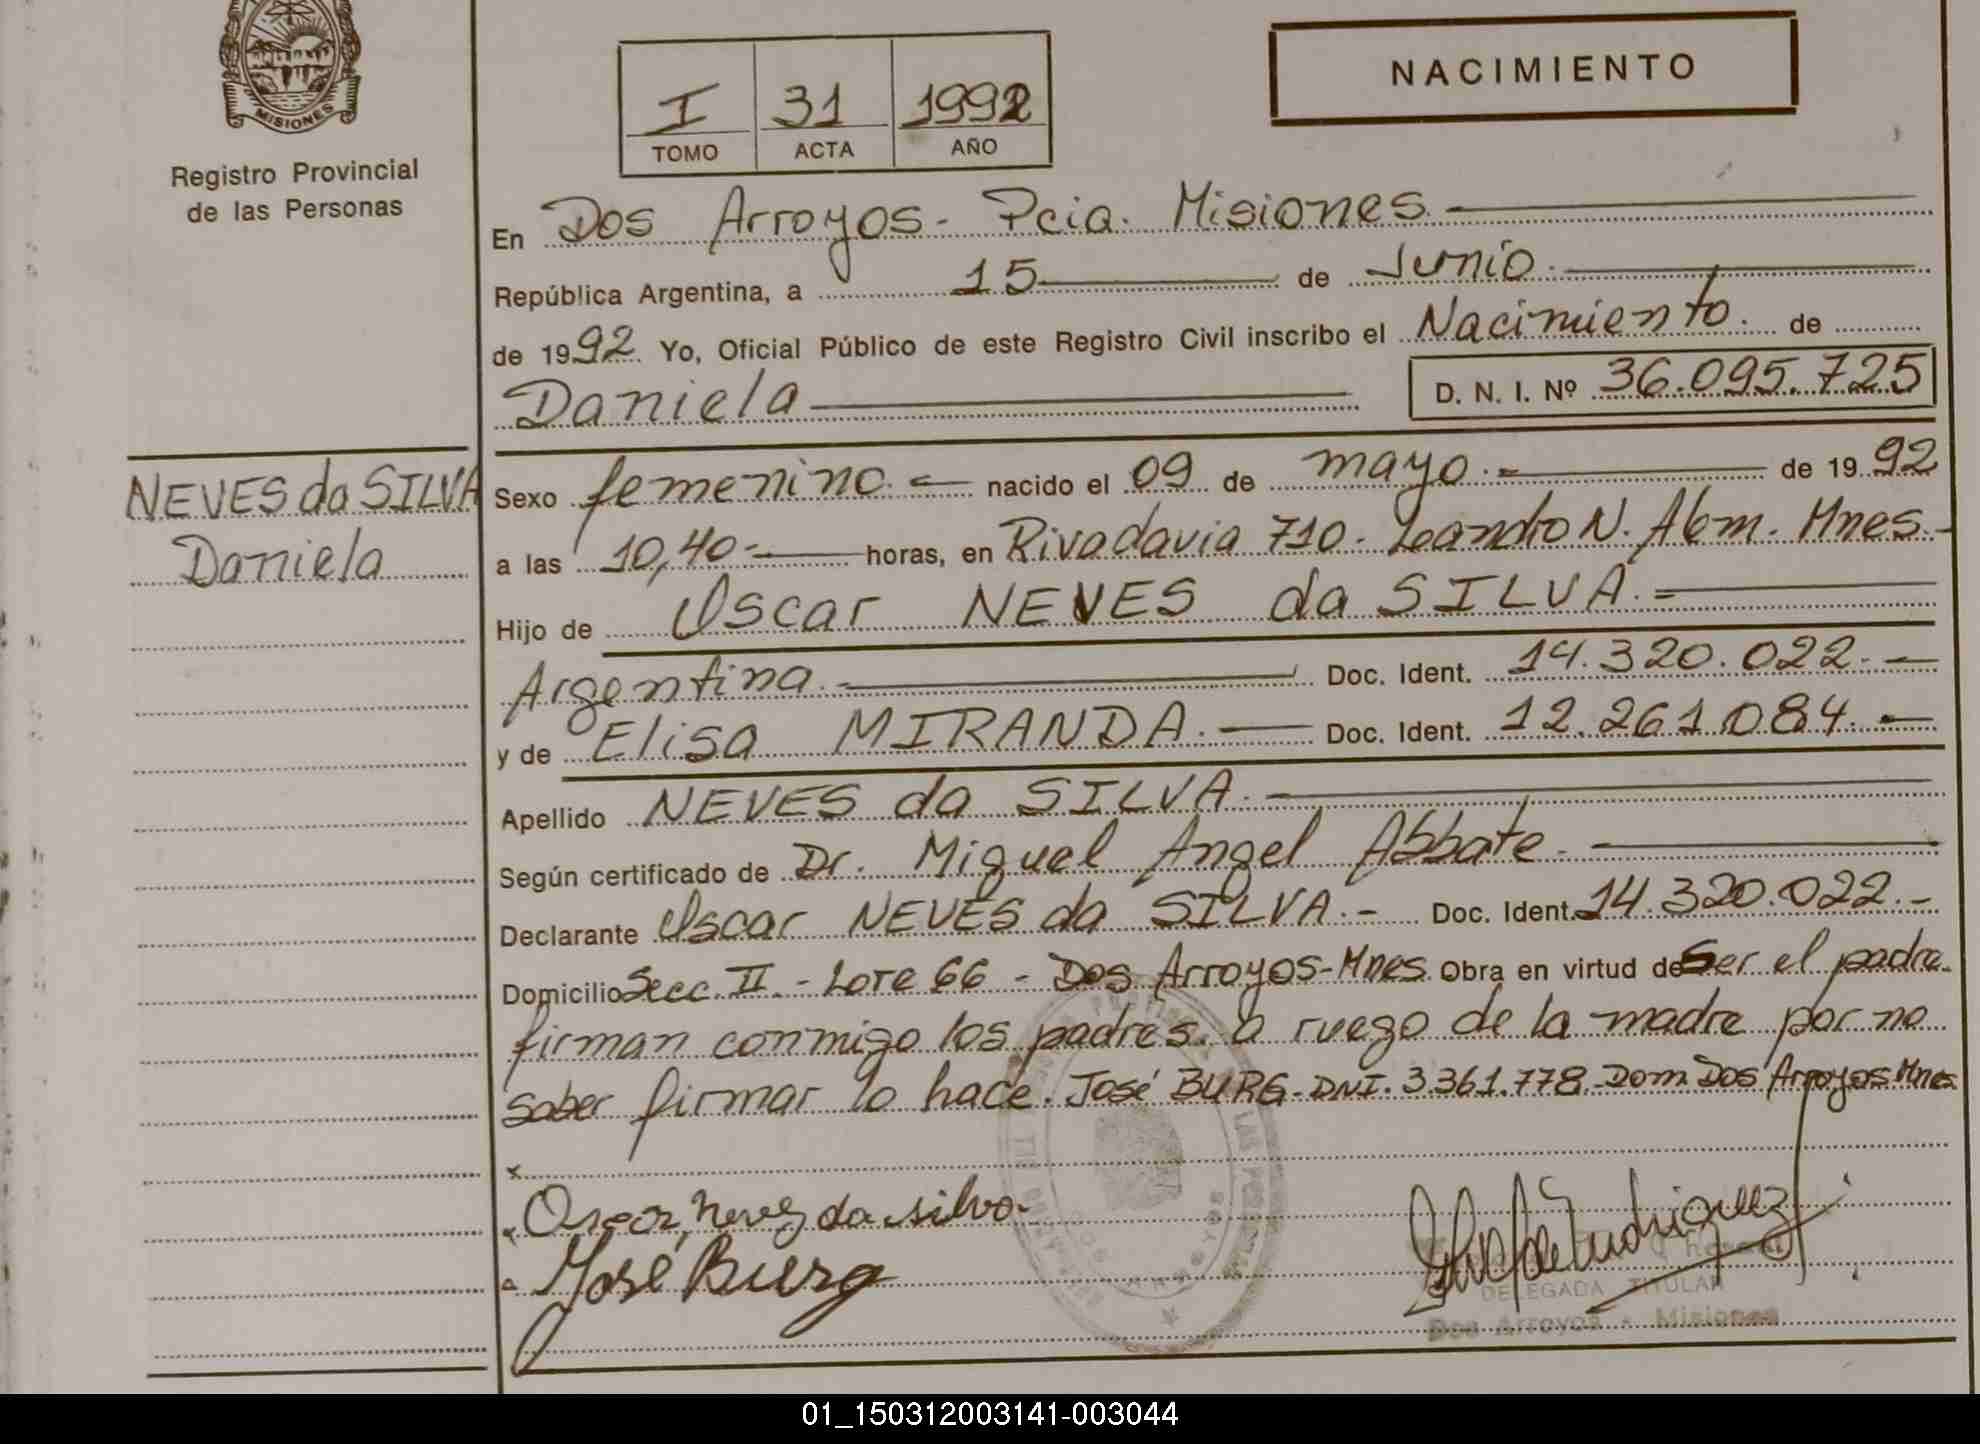 MISIONES
Registro Provincial
de las Personas
I 31 1992
TOMO ACTA AÑO
NACIMIENTO
En Dos Arroyos - Pcia. Misiones
República Argentina, a 15 de Junio
de 1992. Yo, Oficial Público de este Registro Civil inscribo el Nacimiento. de
Daniela D. N. I. Nº 36.095.725
NEVES da SILVA
Daniela
Sexo femenino. nacido el 09 de mayo. de 1992
a las 10,40 horas, en Rivadavia 710. Leandro N. Alem. Mnes.
Hijo de Oscar NEVES da SILVA.
Argentina. Doc. Ident. 14.320.022.
y de Elisa MIRANDA. Doc. Ident. 12.261.084.
Apellido NEVES da SILVA.
Según certificado de Dr. Miguel Angel Abbate
Declarante Oscar NEVES da SILVA. - Doc. Ident. 14.320.022.-
Domicilio Secc. II - Lote 66 - Dos Arroyos-Mnes. Obra en virtud de Ser el padre
firman conmigo los padres. a ruego de la madre por no
saber firmar lo hace. José BURG-DNI. 3.361.778-Dom. Dos Arroyos Mnes.
x
Oscar, neves da silva.
José Burg
DELEGADA TITULAR
Dos Arroyos - Misiones
01_150312003141-003044